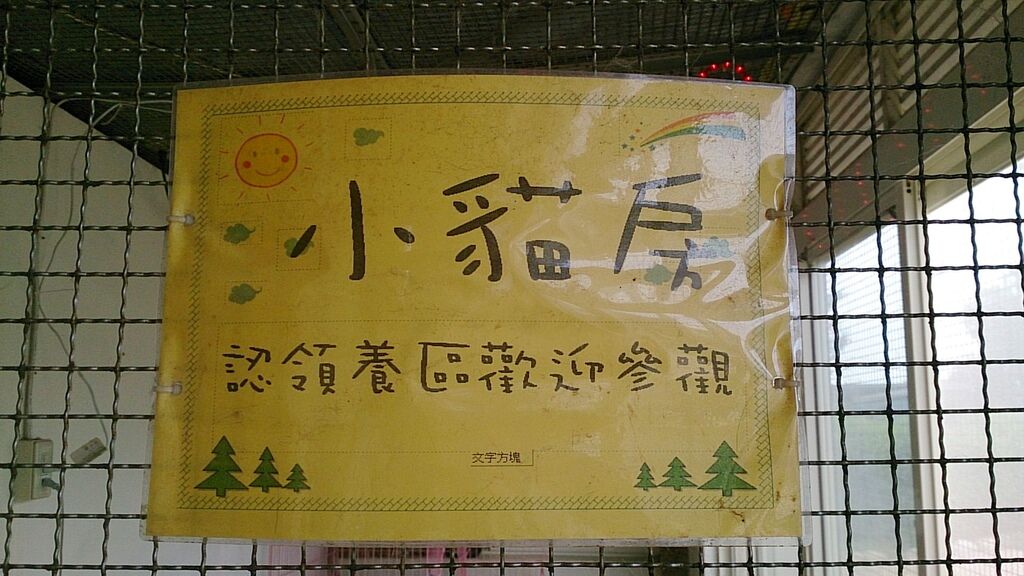 小貓房
認領養區歡迎參觀
文字方塊